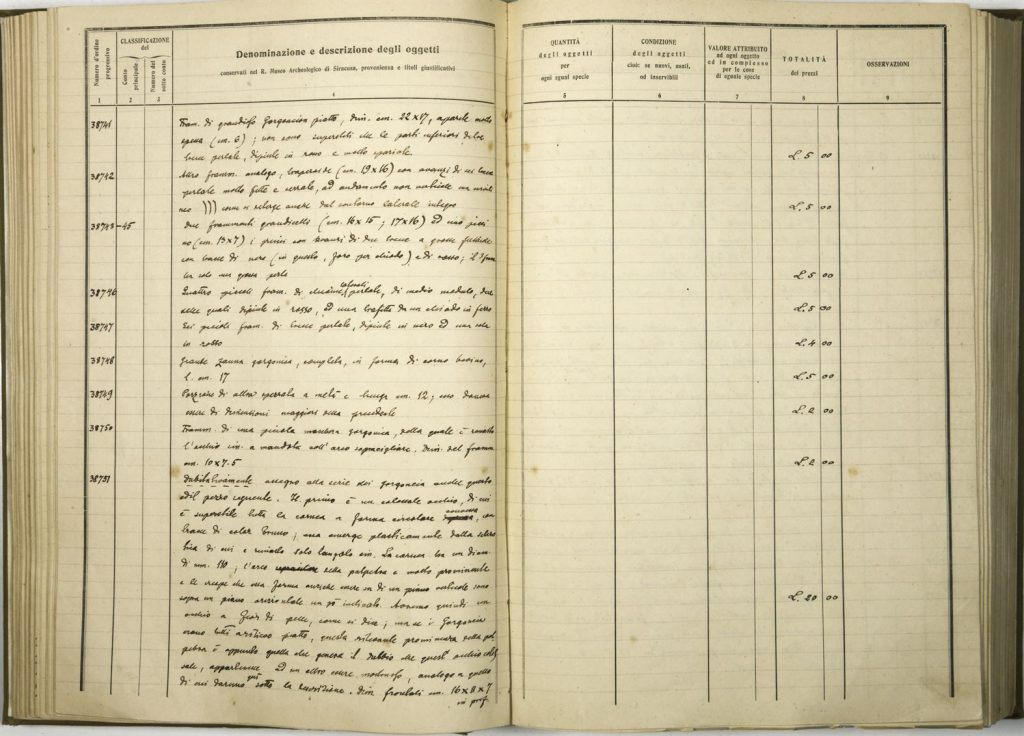 Numero d'ordine progressivo
CLASSIFICAZIONE del
Conto principale
Numero del sotto conto
Denominazione e descrizione degli oggetti
conservati nel R. Museo Archeologico di Siracusa, provenienza e titoli giustificativi
QUANTITÀ degli oggetti per ogni egual specie
CONDIZIONE degli oggetti cioè: se nuovi, usati, od inservibili
VALORE ATTRIBUITO ad ogni oggetto ed in complesso per le cose di eguale specie
TOTALITÀ dei prezzi
OSSERVAZIONI
1 2 3 4 5 6 7 8 9
38741 Fram. di grandioso gorgoneion piatto, dim. cm. 22 x 17, a parete molto
spessa (cm. 6); non sono superstiti che le parti inferiori delle
bucce perlate, dipinte in rosso e molto spaziate.
L. 5 00
38742 Altro framm. analogo, (cm. 19 x 16) con avanzi di sei bucce
perlate molto fitte e serrate, ad andamento non verticale ma
))) come si scorge anche dal contorno laterale integro
L. 5 00
38743-45 Due frammenti grandicelli (cm. 16 x 15; 17 x 16) ed uno picci
no (cm. 13 x 7) i primi con avanzi di due bucce a grosse
con tracce di nero (in questo, foro per chiodo) e di rosso; il 3°
ha solo una grossa perla
L. 5 00
38746 Quattro piccoli fram. di chiome laterali perlate, di medio modulo, due
delle quali dipinte in rosso, ed una trafitta da un chiodo in ferro
L. 5 00
38747 Sei piccoli fram. di bucce perlate, dipinte in nero ed una sola
in rosso
L. 4 00
38748 Grande zanna gorgonica, completa, in forma di corno bovino,
l. cm. 17
L. 5 00
38749 Porzione di altra spezzata a metà e lunga cm. 12; essa doveva
essere di dimensioni maggiori della precedente
L. 2 00
38750 Framm. di una piccola maschera gorgonica, della quale è rimasto
l'occhio sin. a mandorla coll'arco sopracigliare. Dim. del framm.
cm. 10 x 7.5
L. 2 00
38751 Dubitativamente assegno alla serie dei gorgoneia anche questo
ed il pezzo seguente. Il primo è un colossale occhio, di cui
è superstite tutta la cornea a forma circolare convessa, con
tracce di color bruno; essa emerge plasticamente dalla
di cui è rimasto solo l'angolo sin. La cornea ha un diam.
di mm. 110; l'arco della palpebra è molto prominente
e le che essa forma anziché essere su di un piano verticale sono
sopra un piano orizzontale un pò inclinato. Avremo quindi un
occhio a fior di pelle, come si dice; ma se i gorgoneia
erano tutti piatti, questa rilevante prominenza della pal
pebra è appunto quella che genera il dubbio che quest'occhio colos
sale, appartenesse ad un altro essere mostruoso, analogo a quello
di cui daremo qui sotto la descrizione. Dim. frontali cm. 16 x 8 x 7
in prof.
L. 20 00